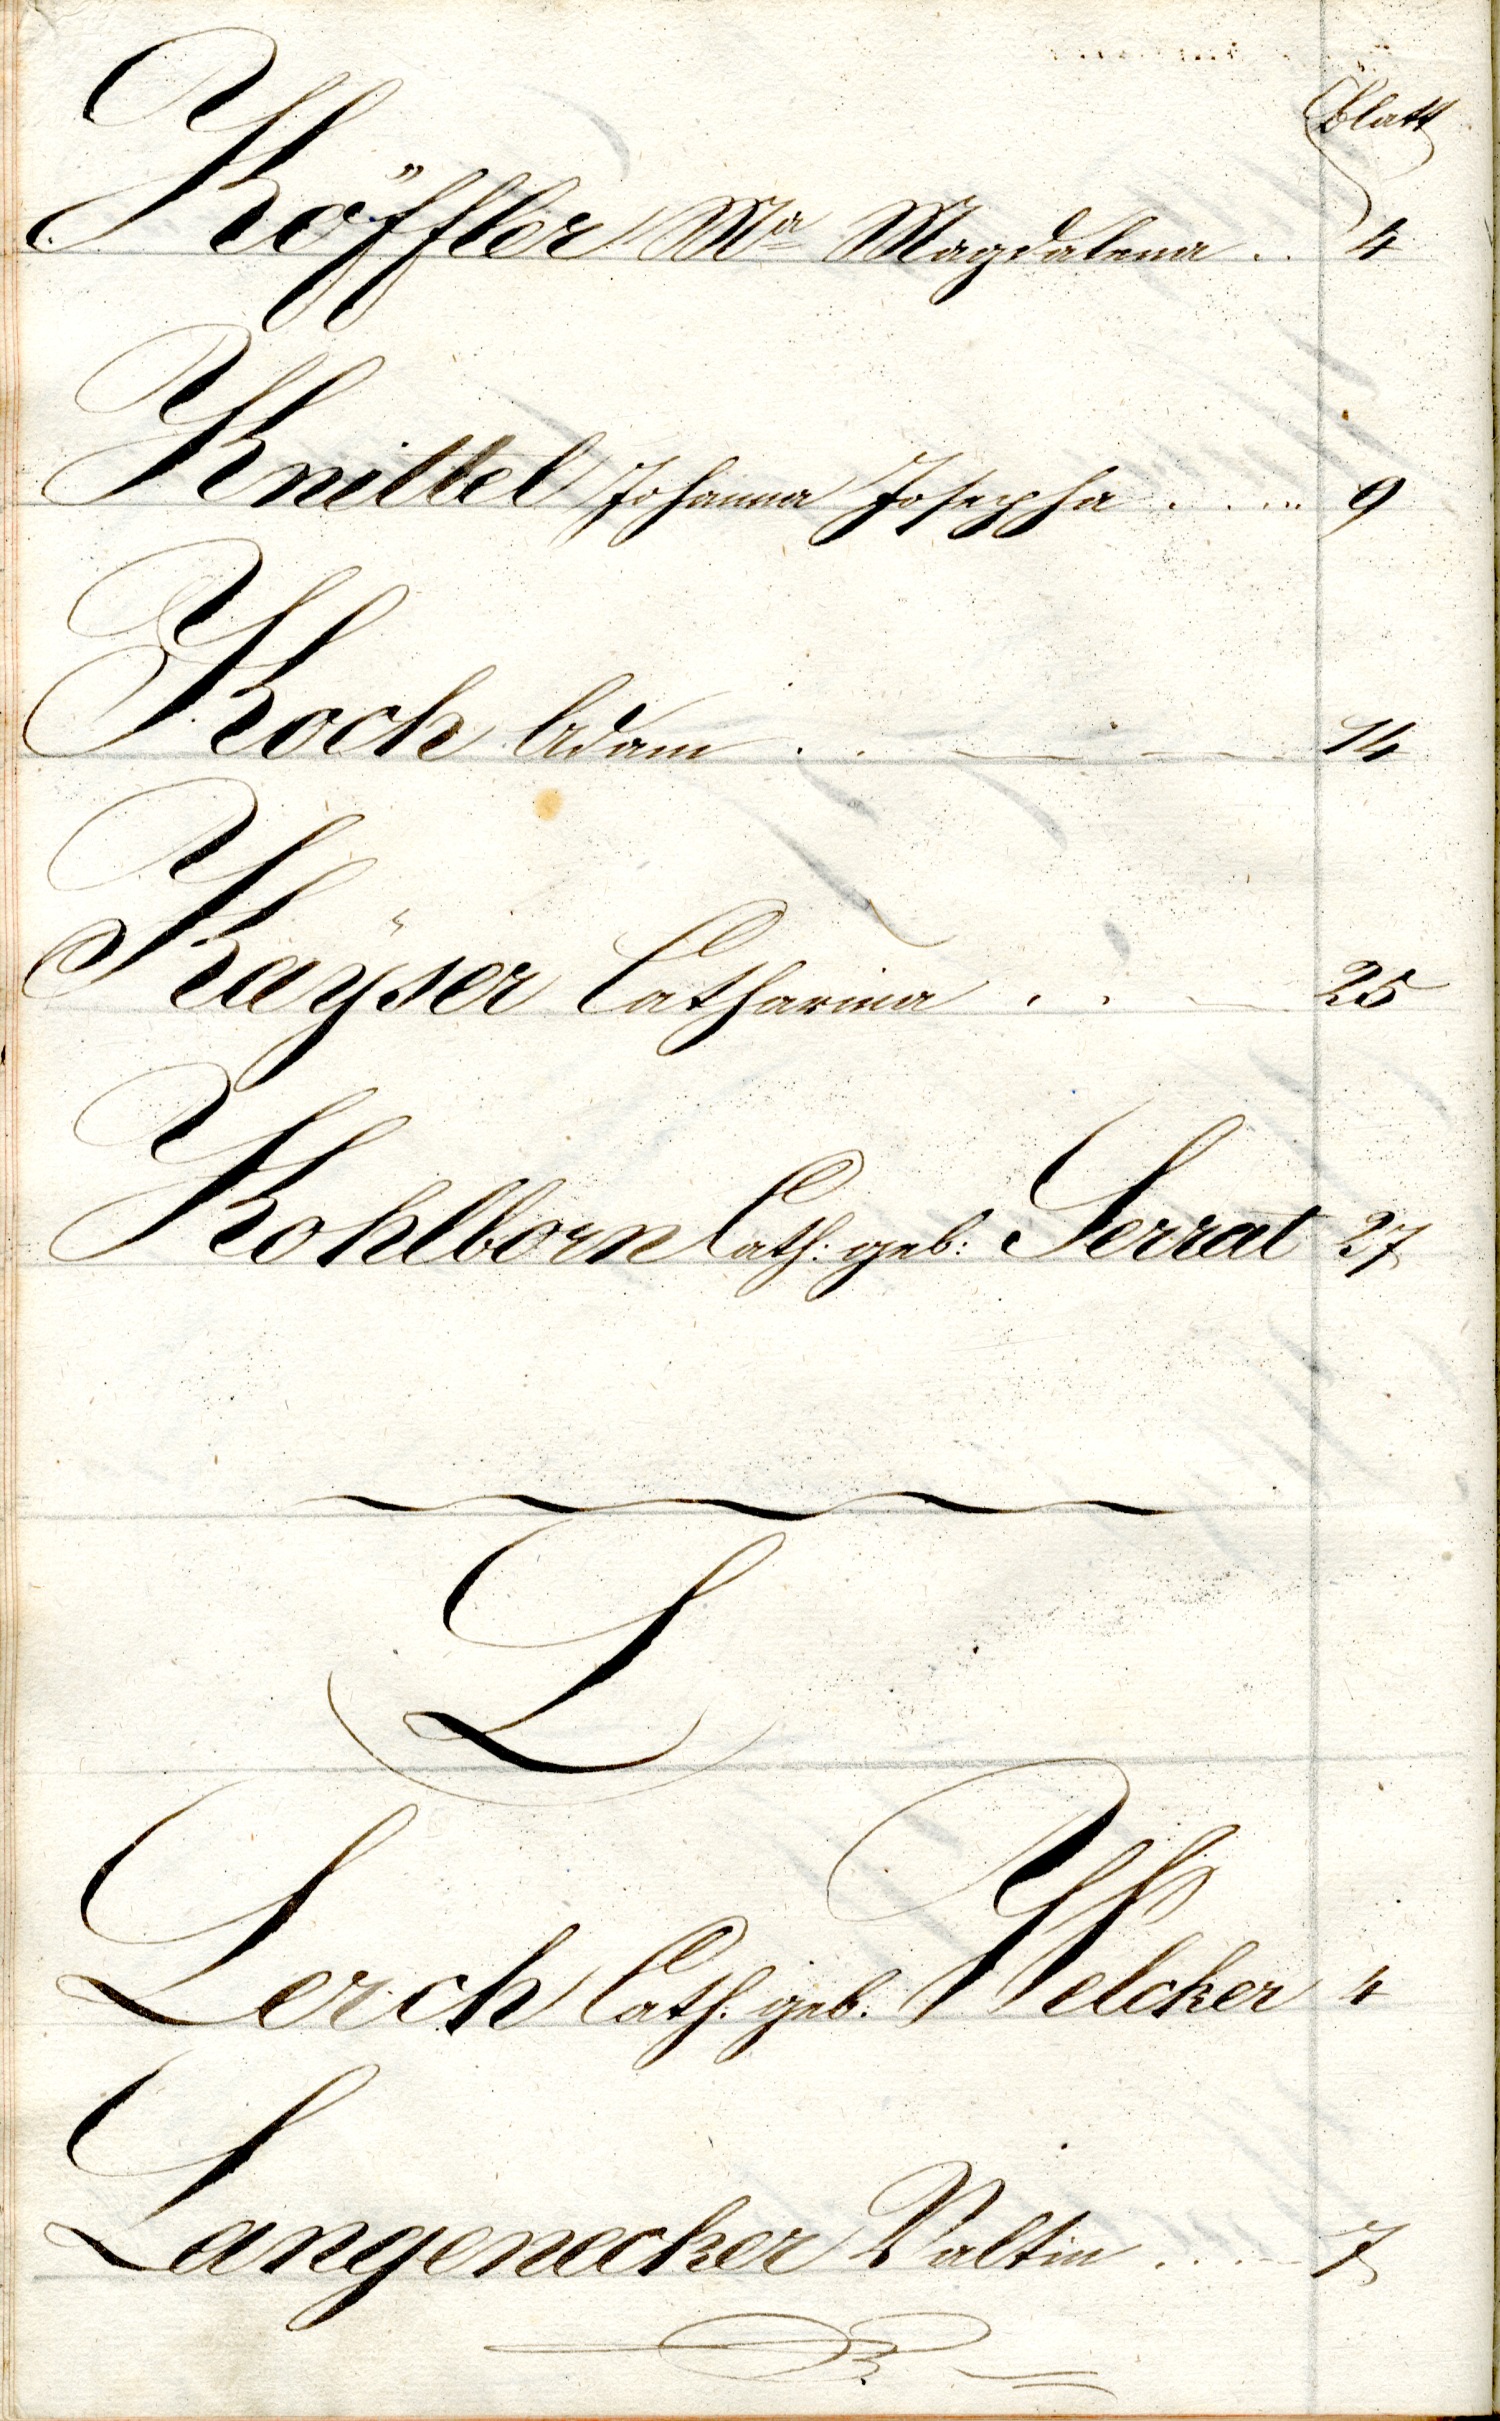 Blatt
Köffler Ma Magdalena . . 4
Knittel Johanna Josepha . . . . . 9
Koch Adam . . 14
Kaÿser Catharina . . 25
Kohlborn Cath: geb: Serrat 27
L
Lerch Cath: geb: Welcker 4
Langenecker Valtin . . . . 7